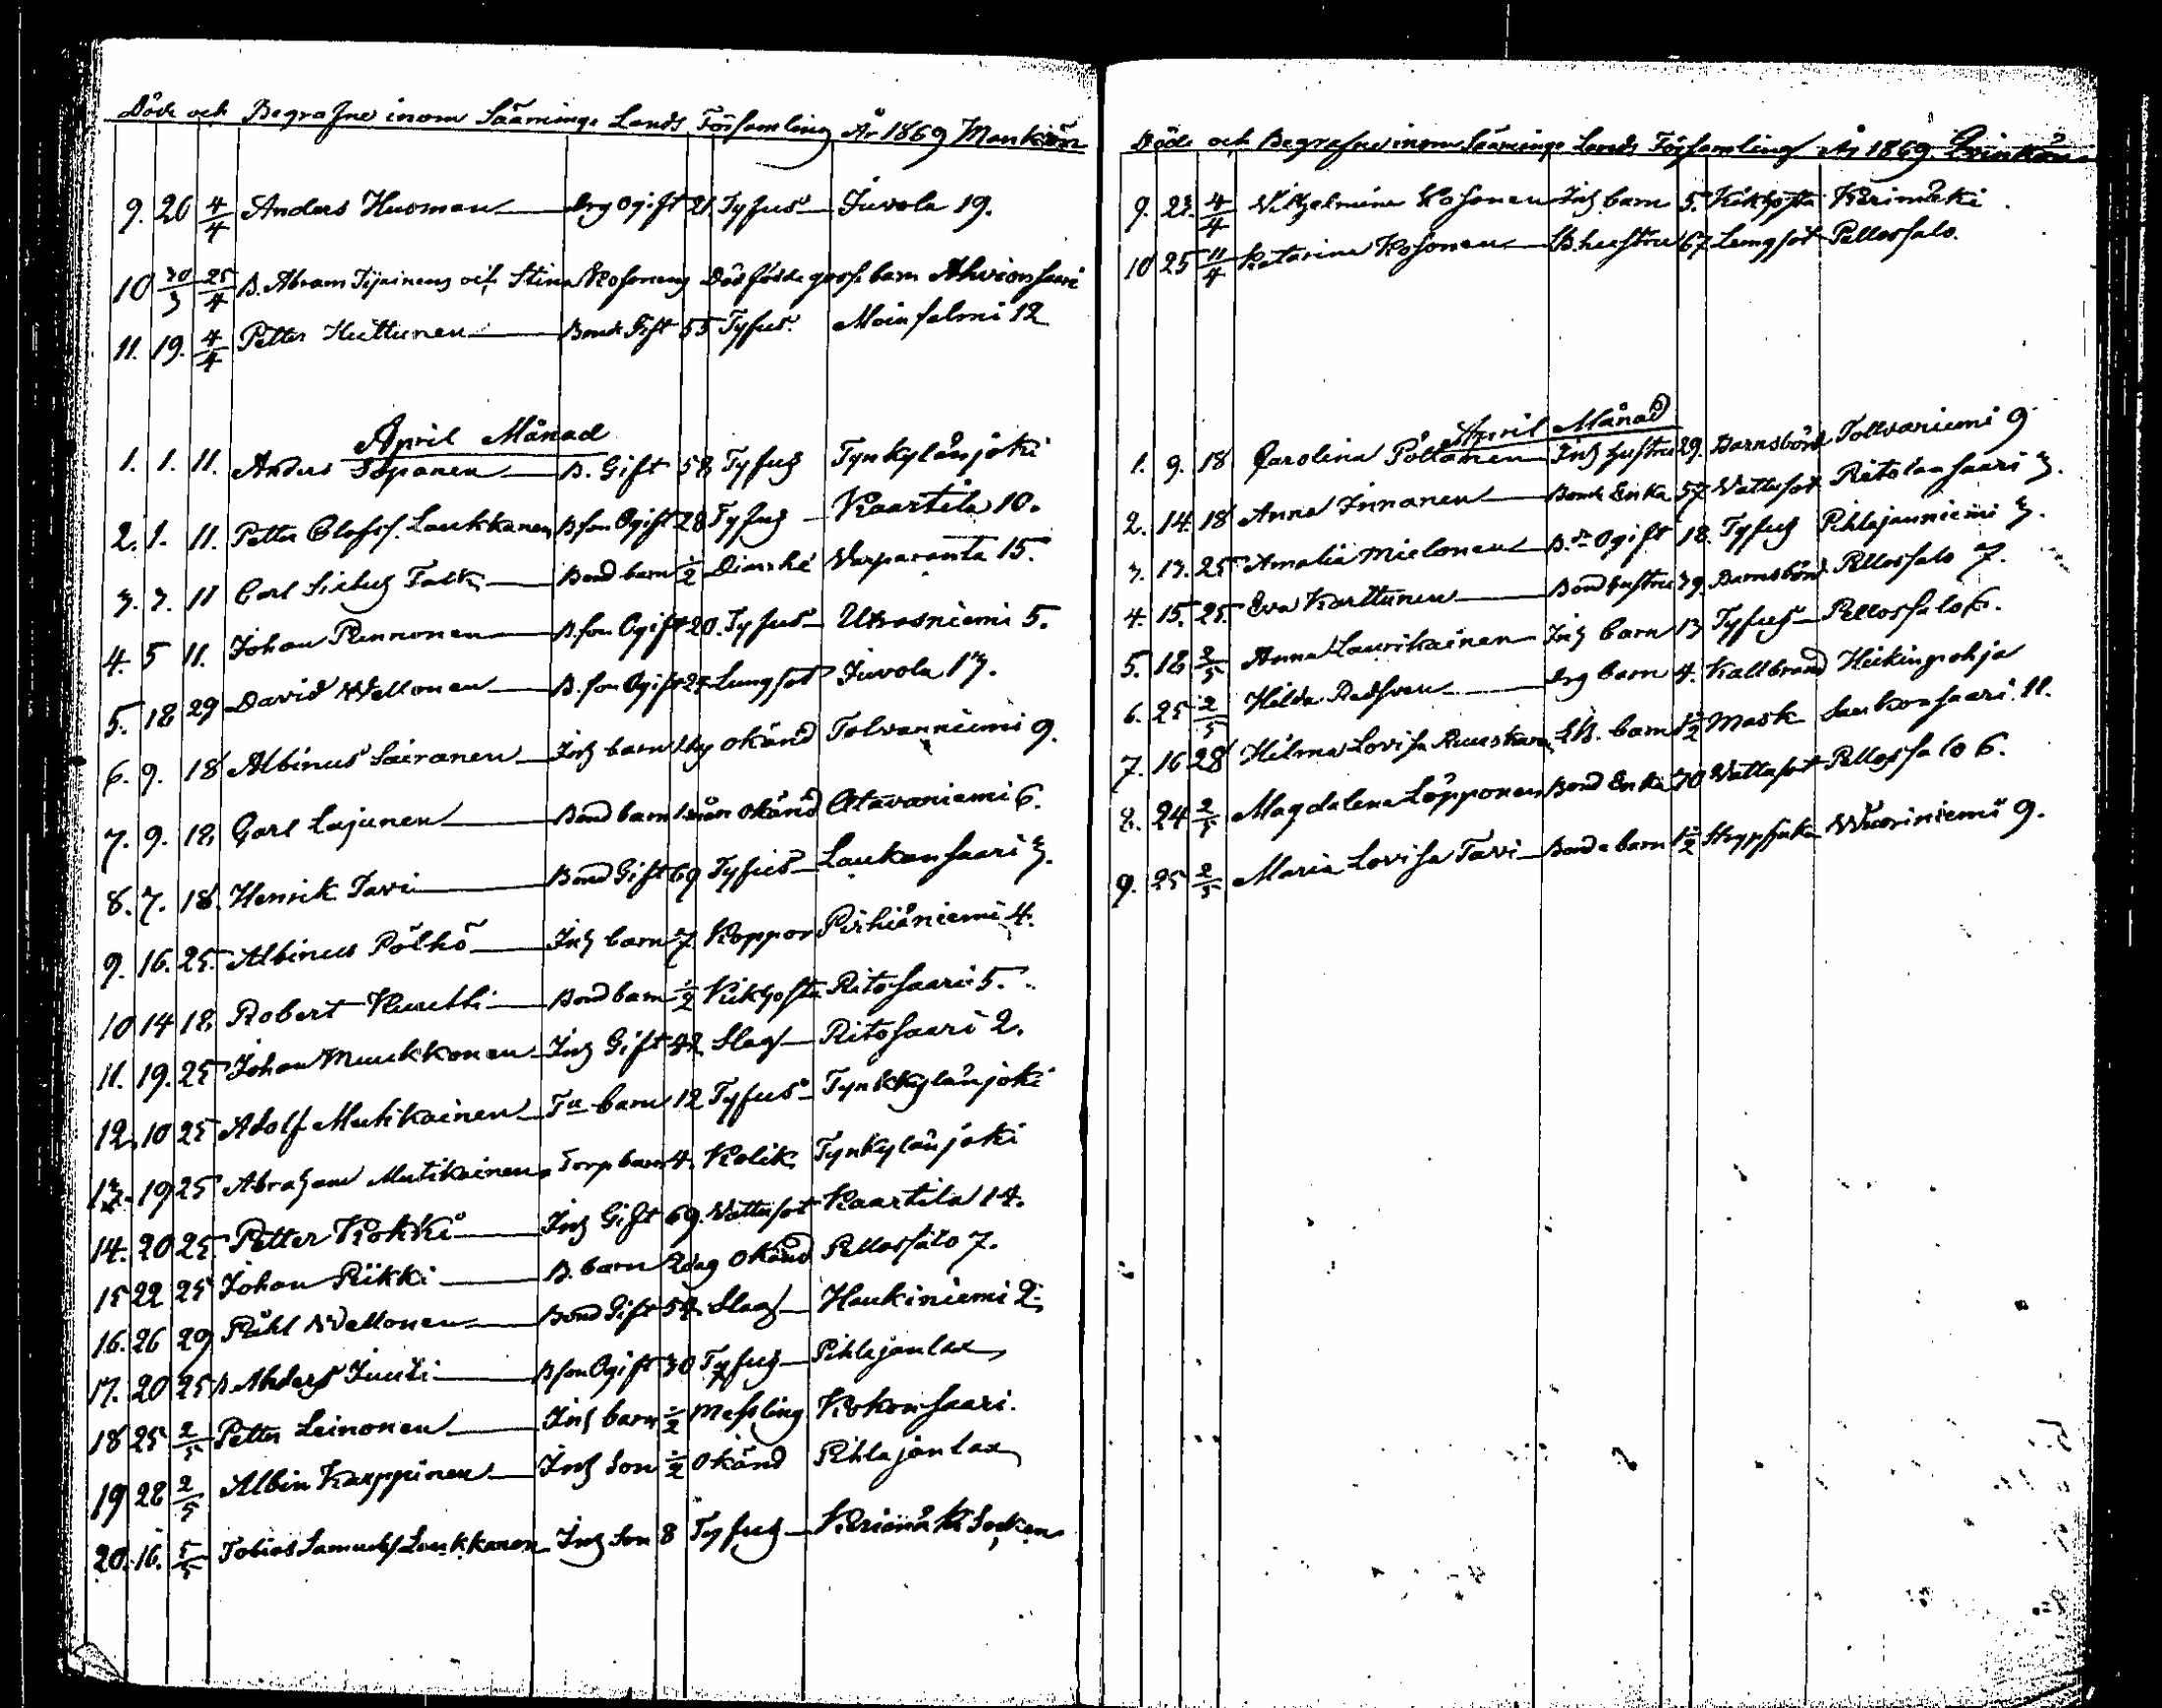 Döde och Begrafne inom Sääminge Lands Församling År 1869 Mankön
9. 20 4/4 Anders Husman drg Ogift 21 Tyfus Juvola 19.
10 30/3 25/4 B. Abram och Stina Kosonens Dödfödde goss barn Ahvionsaari
11. 19. 4/4 Petter Huttunen Bond Gift 55 Tyfus. Moinsalmi 12
April Månad
1. 1. 11. Anders Sopanen B. Gift 58 Tyfus Tynkylänjoki
2. 1. 11. Petter Olofss. Laukkanen B son Ogift 28 Tyfus Kaartila 10.
3. 3. 11 Carl Falk Bond barn 1/2 Varparanta 15.
4. 5 11. Johan Pennonen B. son Ogift 20. Tyfus Utrasniemi 5.
5. 18 29 David Wellonen B. son Ogift Lungsot Juvola 13.
6. 9. 18 Albinus Sairanen Inh barn okänd Tolvanniemi 9.
7. 9. 18 Carl Lajunen Bond barn okänd Otavaniemi 6.
8. 7. 18. Henrik Tavi Bond Gift 69 Tyfus Laukansaari 3.
9. 16. 25. Albinus Pölkö Inh barn 7 Koppor Pihiäniemi 4.
10 14 18 Robert Kurtti Bond barn 1/2 Kikhosta Ritosaari 5.
11. 19. 25 Johan Muukkonen Inh Gift 42 Slag Ritosaari 2.
12. 10 25 Adolf Mutikainen barn 12 Tyfus Tynkkylänjoki
13. 19 25 Abraham Mutikainen Torp barn 4. Kolik Tynkylänjoki
14. 20 25 Petter Kokki Inh Gift 69. Vattusot Kaartila 14.
15 22 25 Johan Pikki B. barn 2 dag okänd Pellossalo 7.
16. 26 29 Påhl Wellonen Bond Gift Slag Haukiniemi 2.
17. 20 25 B. Anders Juuti B son Ogift 30 Tyfus Pihlajanlax
18 25 2/5 Petter Leinonen Inh barn 1/2 Messling Kokonsaari.
19 28 2/5 Albin Karppinen Inh Son 1/2 okänd Pihlajanlax
20. 16. 5/5 Tobias Samuelss Laukkanen Inh Son 8 Tyfus Kerimäki Socken
Döde och Begrafne inom Sääminge Lands Församling År 1869. Qvinkön
9. 23. 4/4 Vilhelmina Kosonen Inh barn 5. Kikhosta Kerimäki
10 25 11/4 Katarina Kosonen B. hustru 67 Lungsot Pellossalo.
April Månad
1. 9. 18 Carolina Pöltänen Inh hustru 29. Barnsbörd Tolvaniemi 9
2. 14. 18 Anna Innanen Bond Enka 57 Vattusot Ritolansaari 3.
3. 13. 25 Amalia Mielonen Ogift 18. Tyfus Pihlajaniemi 3.
4. 15. 25. Eva Karttunen Bond hustru 39. Barnsbörd Pellossalo 7.
5. 18 2/5 Anna Laurikainen Inh barn 13 Tyfus Pellossalo 6.
6. 25 2/5 Hilda Redsven drg barn 4. Kallbrand Heikinpohja
7. 16 28 Hilma Lovisa Ruuskanen barn 1/2 Mask Saukonsaari. 11.
8. 24 2/5 Magdalena Löpponen Bond Enka 70 Vattusot Pellossalo 6.
9. 25 2/5 Maria Lovisa Tavi Bonde barn 1/2 Strypsjuka Wuoriniemi 9.